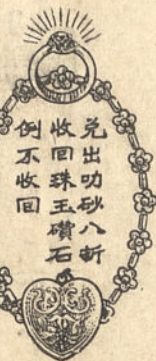 兑出叻砂八折
收回珠玉礸石
例不收回